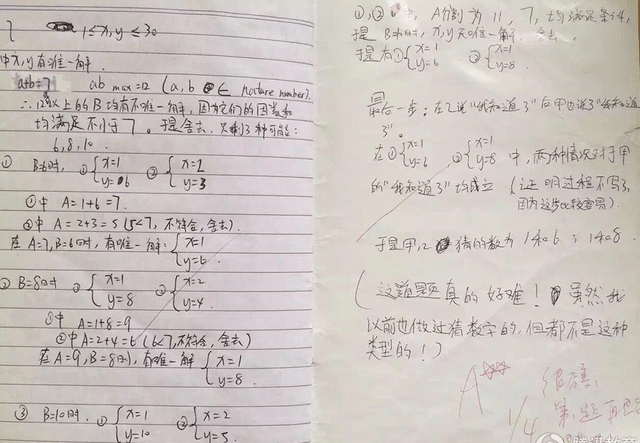 1≤x,y≤30
中x,y有唯一解.
a+b=7 ab max=12 (a,b ∈ nature number).
∴12以上的B均有不唯一解,因为它们的因数和
均满足不小于7。于是舍去,只剩3种可能:
6,8,10.
① B=6时, ① {x=1 ② {x=2
y=6 y=3
①中 A=1+6=7.
②中 A=2+3=5 (5<7, 不符合,舍去).
在A=7,B=6时,有唯一解: {x=1
y=6.
② B=8时 ① {x=1 ② {x=2
y=8 y=4.
①中 A=1+8=9
②中 A=2+4=6 (6<7,不符合,舍去)
在A=9,B=8时,有唯一解 {x=1
y=8.
③ B=10时. ① {x=1 ② {x=2
y=10 y=5.
①,② A分别为 11,7,均满足条件,
于是 B=10时, x,y无唯一解. 舍去.
于是有① {x=1 ② {x=1
y=6 y=8.
最后一步:在乙说“我知道了”后甲也说了“我知道
了”。
在① {x=1 ② {x=1 中,两种情况对于甲
y=6 y=8
的“我知道了”均成立 (证明过程不写了,
因为这步比较容易).
于是甲,乙 猜的数为 1和6;1和8.
(这道题真的好难! 虽然我
以前也做过猜数字的,但都不是这种
类型的!)
A
很棒!
1/4
第1题再
腾讯教育